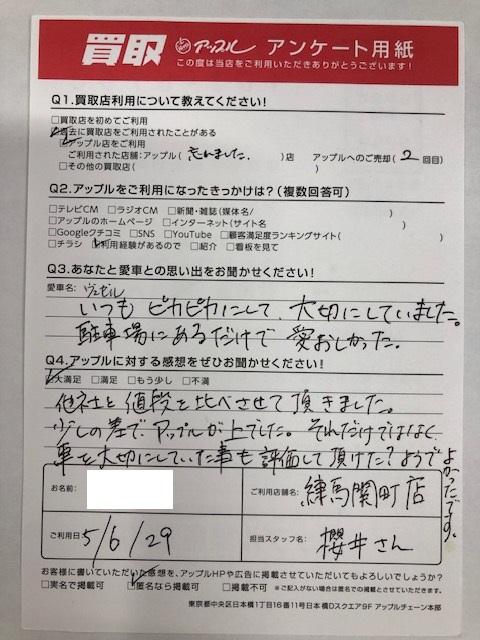 買取 アップル アンケート用紙
この度は当店をご利用いただきありがとうございます!
Q1.買取店利用について教えてください!
□買取店を初めてご利用
☑過去に買取店をご利用されたことがある
☑アップル店をご利用
ご利用された店舗:アップル( 忘れました。 )店 アップルへのご売却( 2 回目)
□その他の買取店( )
Q2.アップルをご利用になったきっかけは?(複数回答可)
□テレビCM □ラジオCM □新聞・雑誌(媒体名/ )
□アップルのホームページ □インターネット(サイト名 )
□Googleクチコミ □SNS □YouTube □顧客満足度ランキングサイト( )
□チラシ ☑利用経験があるので □紹介 □看板を見て
Q3.あなたと愛車との思い出をお聞かせください!
愛車名: ヴェゼル
いつもピカピカにして、大切にしていました。
駐車場にあるだけで愛おしかった。
Q4.アップルに対する感想をぜひお聞かせください!
☑大満足 □満足 □もう少し □不満
他社と値段を比べさせて頂きました。
少しの差で、アップルが上でした。それだけではなく
車を大切にしていた事も評価して頂けた?ようで
よかったです。
お名前:
ご利用店舗名: 練馬関町店
ご利用日 5/6/29
担当スタッフ名: 櫻井さん
お客様に書いていただいた感想を、アップルHPや広告に掲載させていただいてもよろしいでしょうか?
□実名で掲載可 ☑匿名なら掲載可 □掲載不可 ※ご記入がない場合は匿名での掲載とさせていただきます。
東京都中央区日本橋1丁目16番11号日本橋Dスクエア9F アップルチェーン本部